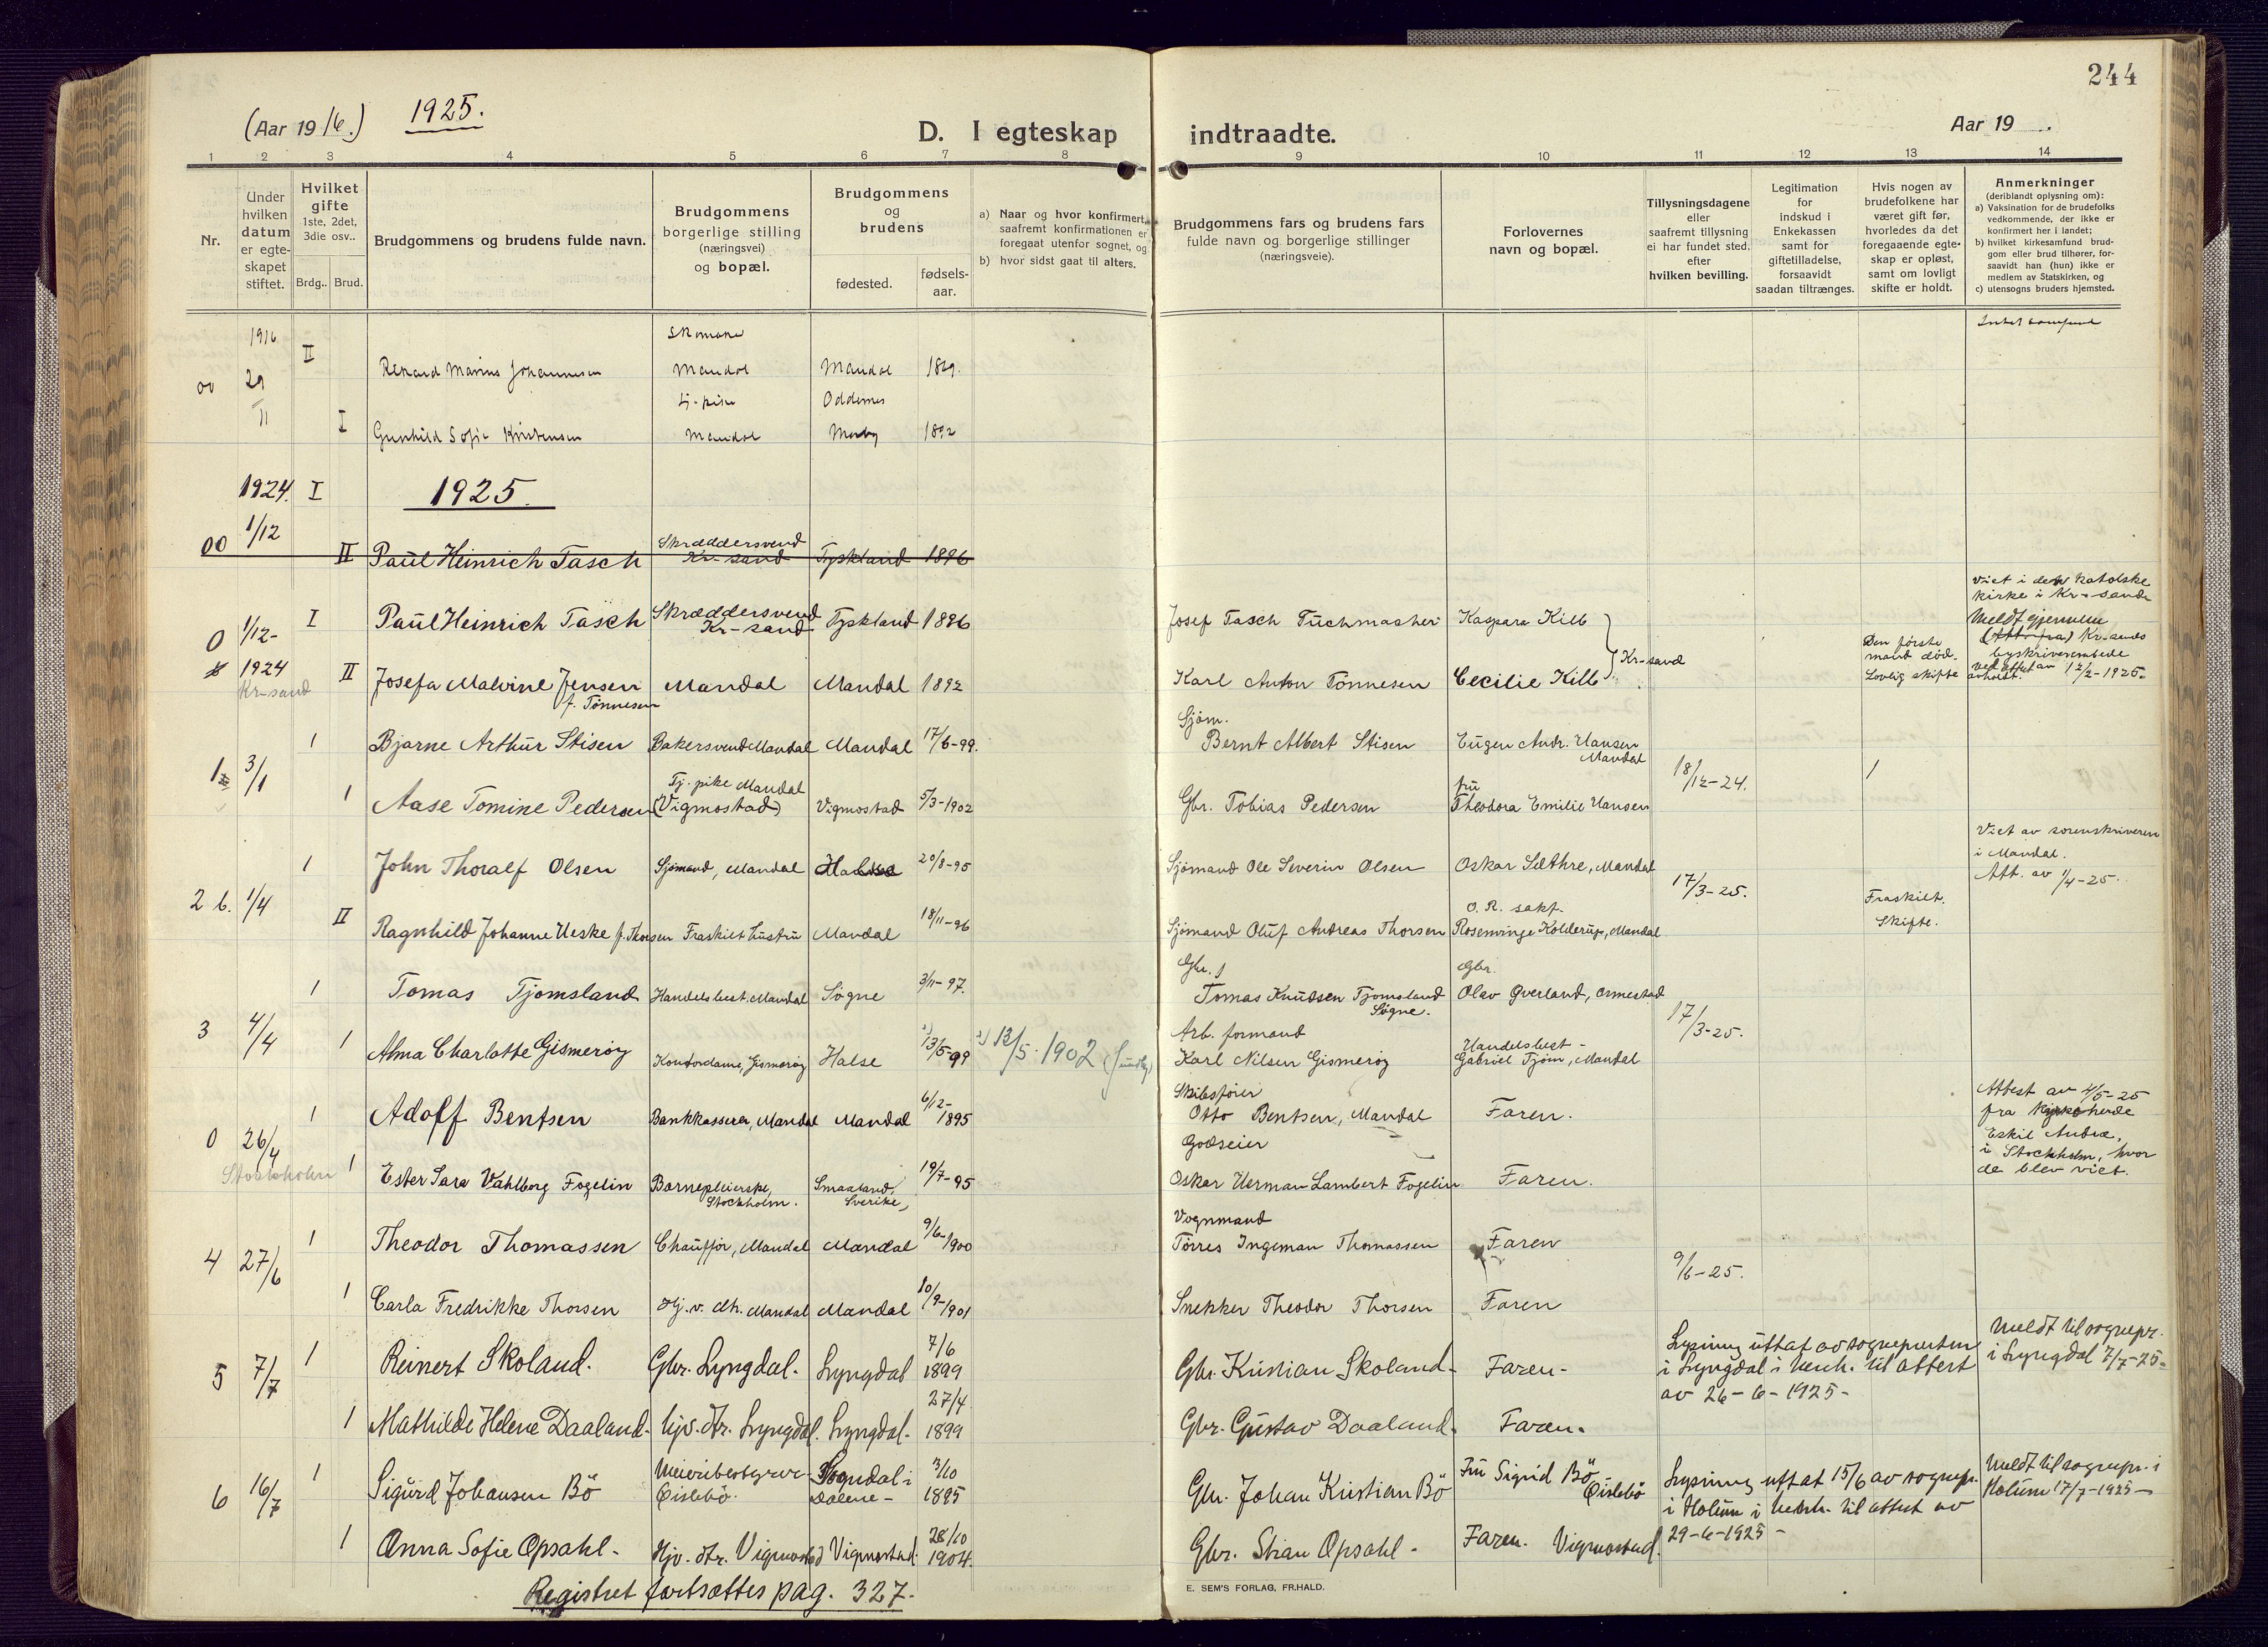 244
(Aar 1916.) 1925.
D. I egteskap indtraadte.
Aar 19 .
1 2 3 4 5 6 7 8 9 10 11 12 13 14
Nr.
Under hvilken datum er egteskapet stiftet.
Hvilket gifte 1ste, 2det, 3die osv..
Brdg.. Brud.
Brudgommens og brudens fulde navn.
Brudgommens borgerlige stilling (næringsvei) og bopæl.
Brudgommens og brudens
fødested.
fødsels-aar.
a) Naar og hvor konfirmert, saafremt konfirmationen er foregaat utenfor sognet, og
b) hvor sidst gaat til alters.
Brudgommens fars og brudens fars fulde navn og borgerlige stillinger (næringsveie).
Forlovernes navn og bopæl.
Tillysningsdagene eller saafremt tillysning ei har fundet sted. efter hvilken bevilling.
Legitimation for indskud i Enkekassen samt for giftetilladelse, forsaavidt saadan tiltrænges.
Hvis nogen av brudefolkene har været gift før, hvorledes da det foregaaende egteskap er opløst, samt om lovligt skifte er holdt.
Anmerkninger (deriblandt oplysning om):
a) Vaksination for de brudefolks vedkommende, der ikke er konfirmert her i landet;
b) hvilket kirkesamfund brudgom eller brud tilhører, forsaavidt han (hun) ikke er medlem av Statskirken, og
c) utensogns bruders hjemsted.
1916 II
29/11 Marius Johannesen Mandal Mandal 1869.
Tj. pike Oddernes
I Gunhild Sofie Kristensen Mandal Mosby 1892
1924. I 1925.
00 1/12 II Paul Heinrich Tasch Skræddersvend Kr-sand Tyskland 1896
viet i den katolske kirke i Kr-sand
0 1/12- I Paul Heinrich Tasch Skræddersvend Kr-sand Tyskland 1896 Josef Tasch Tuchmacher Kaspara Kilb
Kr-sand
Meldt gjennem (Att. fra) Kr-sands byskriverembede ved attest av 12/2-1925.
1924 Kr-sand II Josefa Malvine Jensen f. Tönnesen Mandal Mandal 1892 Karl Anton Tönnesen Cecilie Kilb
Den første mand död. Lovlig skifte avholdt.
1 3/1 1 Bjarne Arthur Stisen Bakersvend Mandal Mandal 17/6-99. Sjøm. Bernt Albert Stisen Eugen Andr. Hansen Mandal
18/12-24. 1
1 Aase Tomine Pedersen Tj. pike Mandal (Vigmostad) Vigmostad 5/3-1902 Gbr. Tobias Pedersen fru Theodora Emilie Hansen
2 b. 1/4 1 John Thoralf Olsen Sjømand, Mandal Halse 20/8-95 Sjømand Ole Severin Olsen Oskar Sæthre, Mandal
17/3-25.
Viet av sorenskriveren i Mandal. Att. av 1/4-25.
II Ragnhild Johanne Heske f. Thorsen Fraskilt hustru Mandal 18/11-96 Sjømand Oluf Andreas Thorsen O. R. sakf. Rosenvinge Kolderup, Mandal
Fraskilt. Skifte.
3 4/4 1 Tomas Tjomsland Handelsbest. Mandal Søgne 3/11-97. Gbr. Tomas Knudsen Tjomsland Søgne. Gbr. Olav Øverland, Ormestad
17/3-25.
1 Alma Charlotte Gismerøy Kontordame, Gismerøy Halse 13/5-99 13/5-1902 Arb. formand Karl Nilsen Gismerøy Handelsbest- Gabriel Tjöm, Mandal
0 26/4 Stockholm 1 Adolf Bentsen Bankkasserer, Mandal Mandal 6/12-1895 Skibsfører Otto Bentsen, Mandal Faren.
Attest av 4/5-25 fra Kyrkoherde Eskil Andræ, i Stockholm, hvor de blev viet.
1 Ester Sara Vahlborg Fogelin Barnepleierske, Stockholm. Smaaland, Sverike, 19/7-95 Godseier Oskar Herman Lambert Fogelin Faren.
4 27/6 1 Theodor Thomassen Chauffør, Mandal Mandal 9/6-1900 Vognmand Tørres Ingeman Thomassen Faren
9/6-25.
1 Carla Fredrikke Thorsen Hj. v. dtr. Mandal Mandal 10/9-1901 Snekker Theodor Thorsen Faren
5 7/7 1 Reinert Skoland. Gbr. Lyngdal. Lyngdal 7/6 1899 Gbr. Kristian Skoland. Faren-
Lysning uttat av sognepresten i Lyngdal i henh. til attest av 26-6-1925-
Meldt til sognepr. i Lyngdal 7/7-25.
1 Mathilde Helene Daaland. Hjv. dtr. Lyngdal. Lyngdal. 27/4 1899 Gbr. Gustav Daaland. Faren.
6 16/7 1 Sigurd Johansen Bö Meieribestyrer Øislebö. Sogndal i Dalene- 3/10 1895 Gbr. Johan Kristian Bö Fru Sigrid Bö Øislebö
Lysning uttat 15/6 av sognepr. i Holum i henh. til attest av 29-6-1925-
Meldt til sognepr. i Holum 17/7-1925-
1 Anna Sofie Opsahl- Hjv. dtr. Vigmostad Vigmostad. 28/10 1904. Gbr. Stian Opsahl- Faren. Vigmostad.
Registret fortsættes pag. 327.
E. SEM'S FORLAG, FR.HALD.